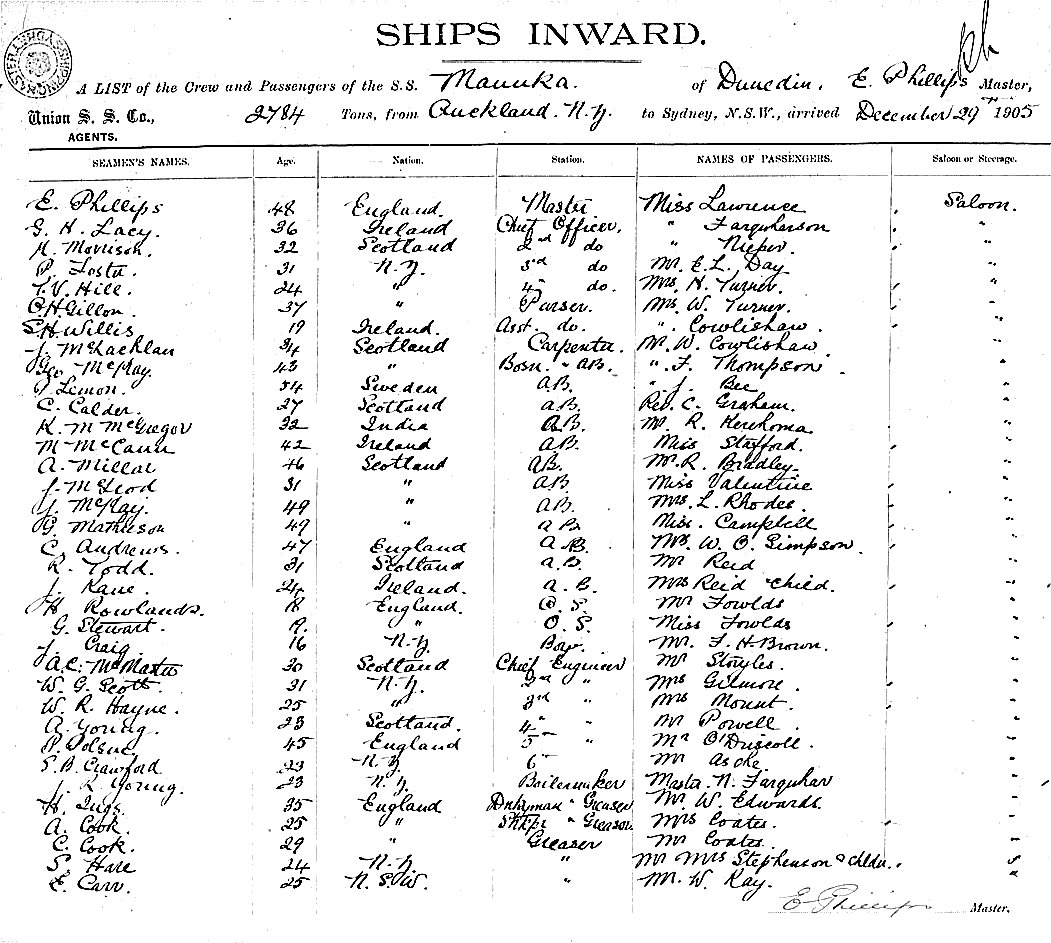 SHIPS INWARD.
A LIST of the Crew and Passengers of the S.S. Manuka. of Dunedin, E. Phillips Master,
Union S. S. Co., 2784 Tons, from Auckland. N.Z. to Sydney, N.S.W., arrived December 29th 1905
AGENTS.
SEAMEN'S NAMES. Age. Nation. Station. NAMES OF PASSENGERS. Saloon or Steerage.
E. Phillips 48 England. Master Miss Lawrence Saloon.
G. H. Lacy. 36 Ireland Chief Officer. " Farquharson "
M. Morrison. 32 Scotland 2nd do " Nieper. "
P. Foster. 31 N.Z. 3rd do Mr. E.L. Day "
T.V. Hill. 24 " 4th do. Mrs. H. Turner. "
C.H. Gillon. 37 " Purser. Mrs W. Turner. "
S.H. Willis 19 Ireland. Asst. do. " Cowlishaw. "
J. McLachlan 34 Scotland Carpenter. Mr. W. Cowlishaw. "
Geo McKay. 43 " Bosn. & AB. " F. Thompson. "
P. Lemon. 54 Sweden A.B. " J. Bee "
C. Calder. 27 Scotland A.B. Rev. C. Graham. "
K. M McGregor 32 India A.B. Mr. R. "
M McCann 42 Ireland A.B. Miss Stafford. "
A. Millar 46 Scotland AB. Mr. R. Bradley. "
J. McLeod 31 " A.B. Miss Valentine "
McKay. 49 " A.B. Mrs. L. Rhodes. "
G. Matheson 49 " A.B. Miss. Campbell "
C. Andrews. 47 England A.B. W. O. Simpson. "
R. Todd. 31 Scotland A.B. Mr Reid "
J. Kane. 24 Ireland. A.B. Mrs Reid & child. "
H. Rowlands. 18 England. O.S. Mr Fowlds "
G. Stewart. 19 " O.S. Miss Fowlds "
J. Craig 16 N.Z Boy. Mr. F. H. Brown. "
A.C. McMaster 30 Scotland Chief Engineer Mr Stoyles. "
W. G. Scott. 31 N.Z. 2nd " Mrs Gilmore. "
W. R. Hayne. 25 " 3rd " Mrs Mount. "
A. Young. 23 Scotland. 4th " Mr Powell "
P. Polsue 45 England 5th " Mr O'Driscoll. "
S. B. Crawford 23 N.Z 6th Mr Asche. "
J. R. Young. 23 N.Z. Boilermaker Master N. Farquhar "
H. Ings. 35 England Dnkyman & Greaser Mr W. Edwards. "
A. Cook. 25 " & Greaser Mrs Coates. "
C. Cook. 29 " Greaser Mr Coates. "
S. Hare 24 N.Z " Mr Mrs Stephenson & chldn. "
E. Carr. 25 N.S.W. " Mr. W. Kay. "
E Phillips Master.